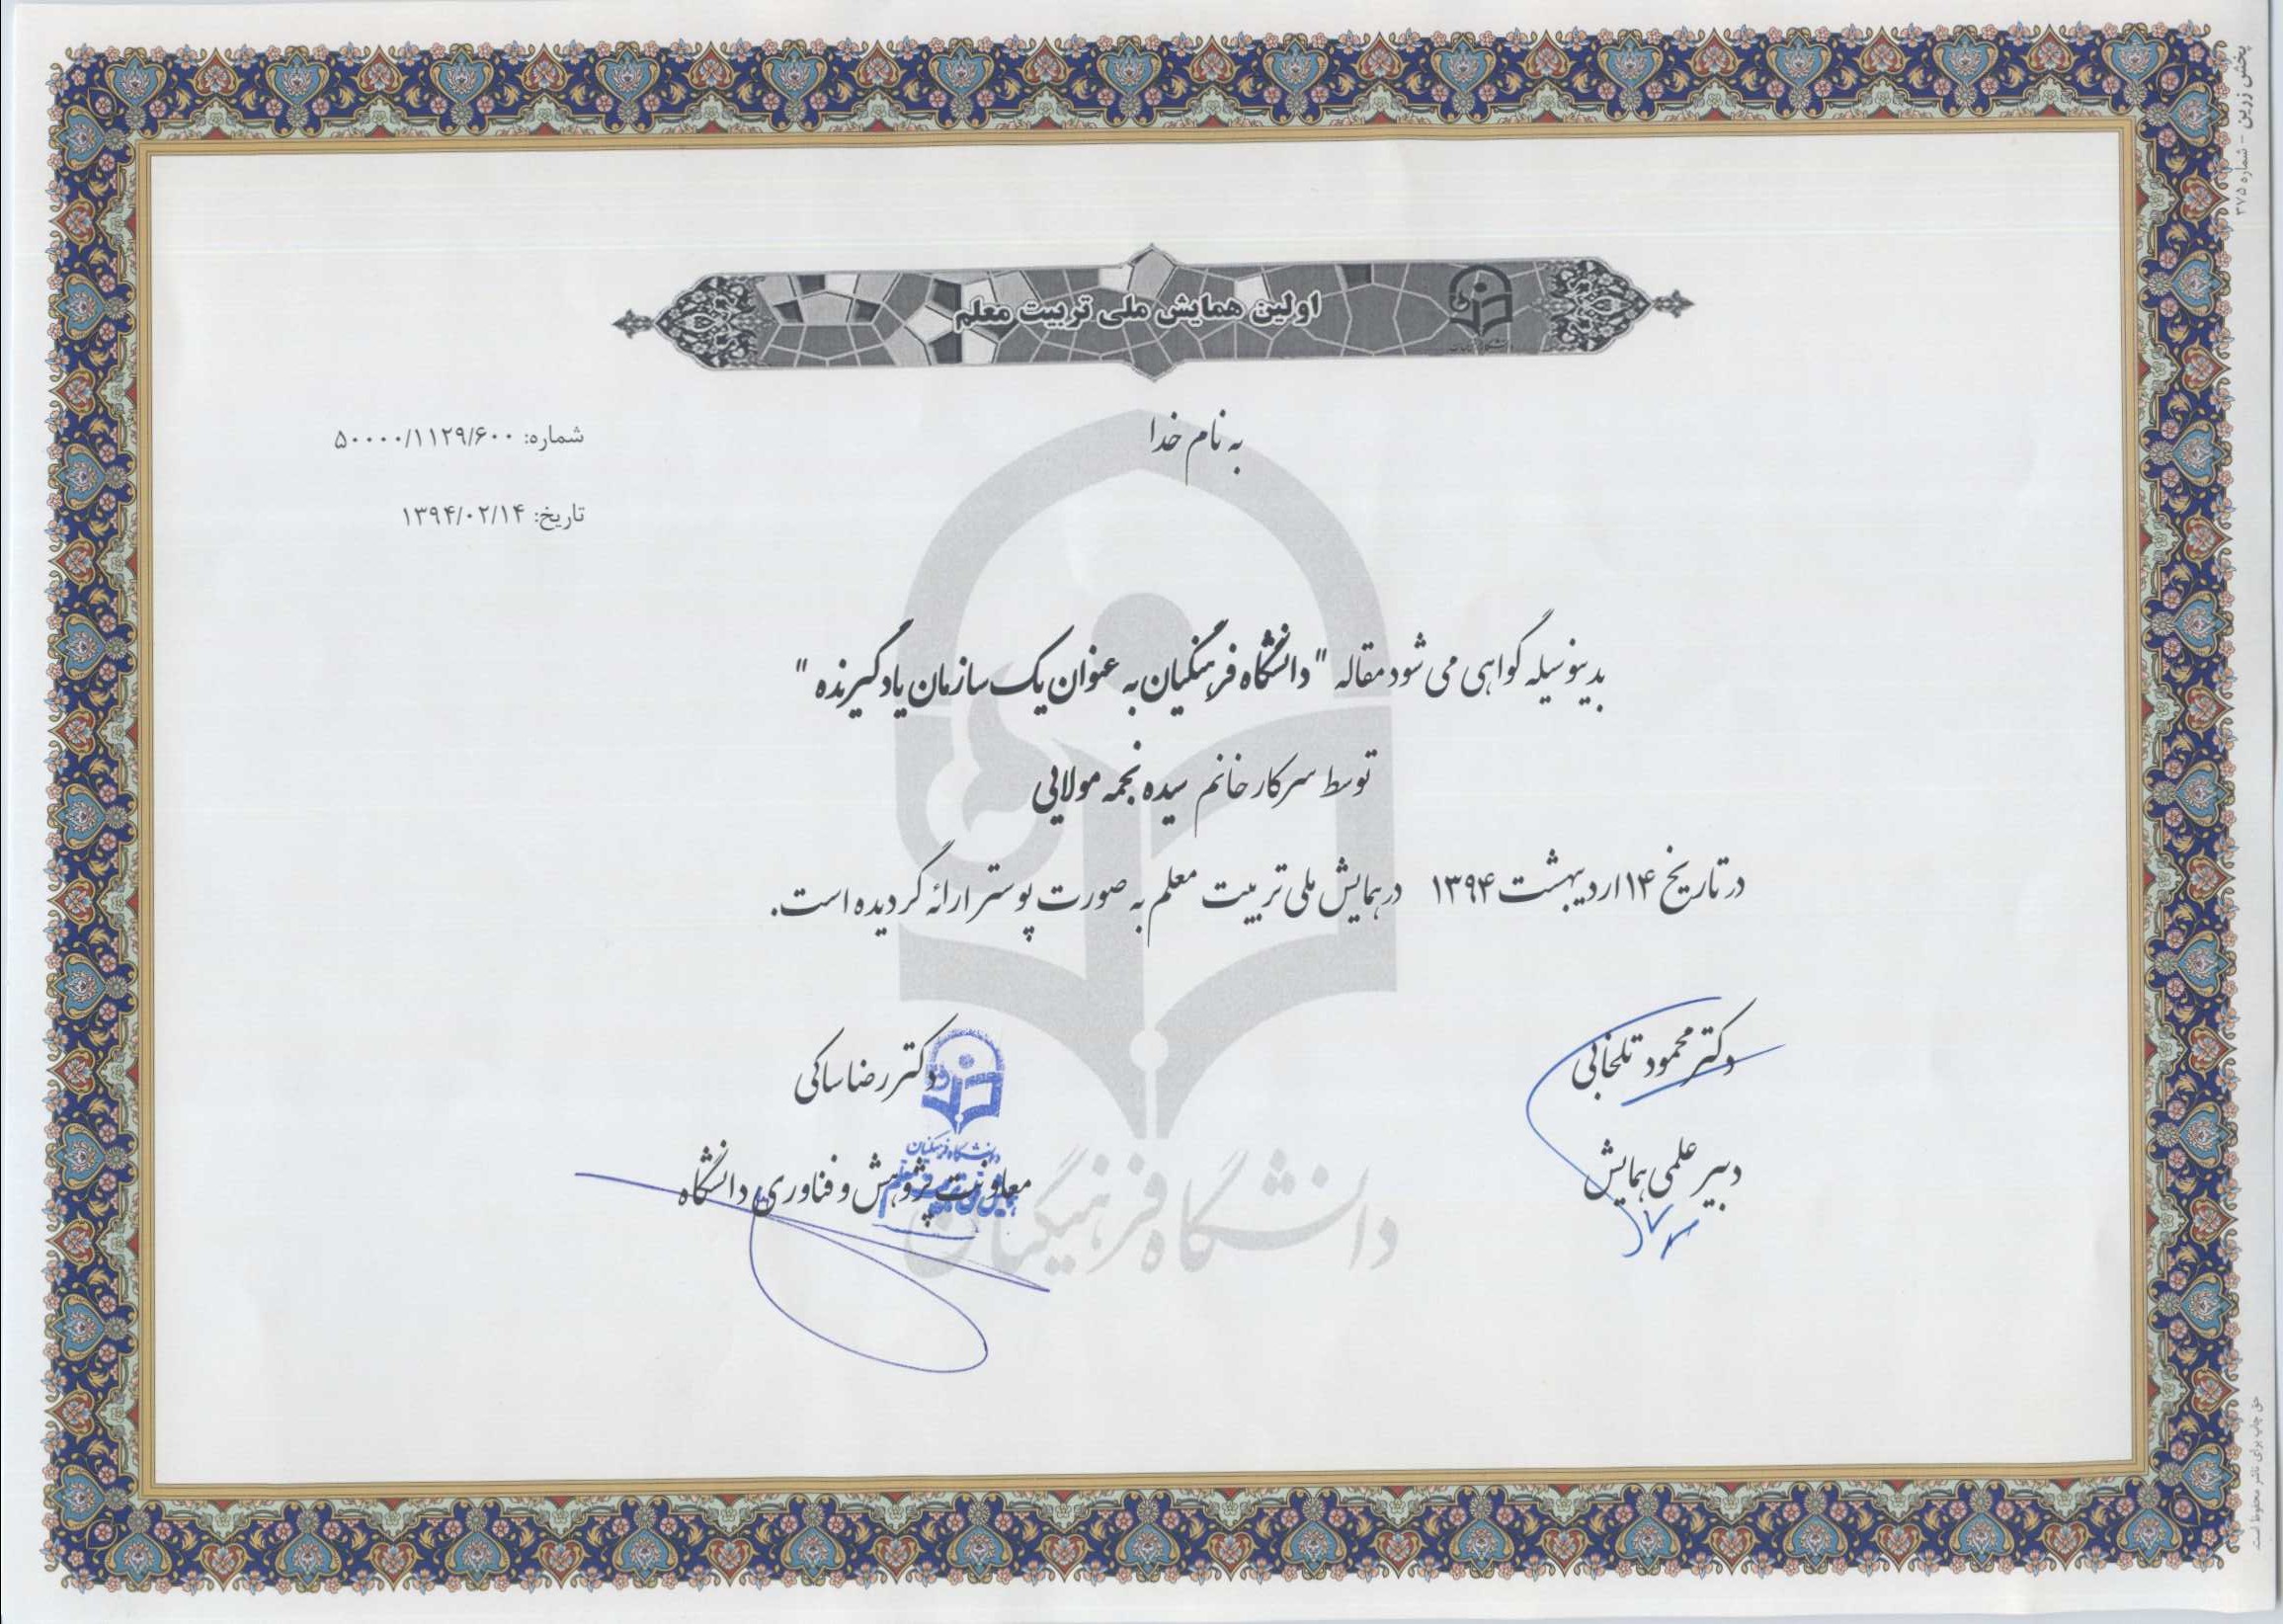 اولین همایش ملی تربیت معلم
به نام خدا
شماره: ۵۰۰۰۰/۱۱۲۹/۶۰۰
تاریخ: ۱۳۹۴/۰۲/۱۴
بدینوسیله گواهی می شود مقاله "دانشگاه فرهنگیان به عنوان یک سازمان یادگیرنده"
توسط سرکار خانم سیده نجمه مولایی
در تاریخ ۱۴ اردیبهشت ۱۳۹۴ در همایش ملی تربیت معلم به صورت پوستر ارائه گردیده است.
دکتر محمود تلخابی
دبیر علمی همایش
دکتر رضا ساکی
معاونت پژوهش و فناوری دانشگاه
دانشگاه فرهنگیان
دانشگاه فرهنگیان
پخش زرین - شماره ۳۷۵
حق چاپ برای ناشر محفوظ است.